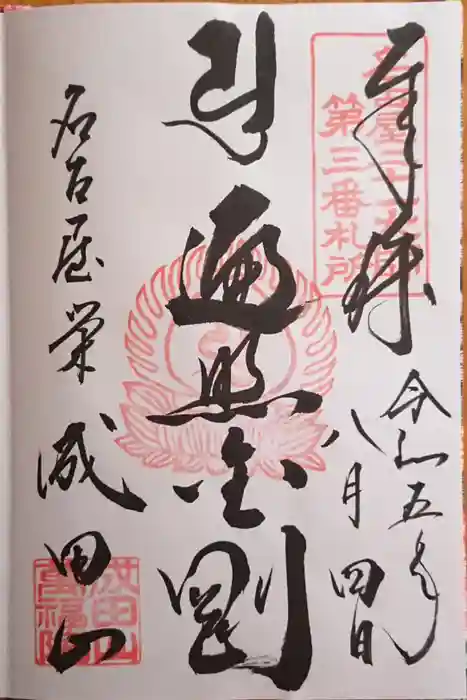 奉拝
令和五年
八月四日
名古屋二十一大師
第三番札所
遍照金剛
名古屋栄
成田山
成田山
萬福院